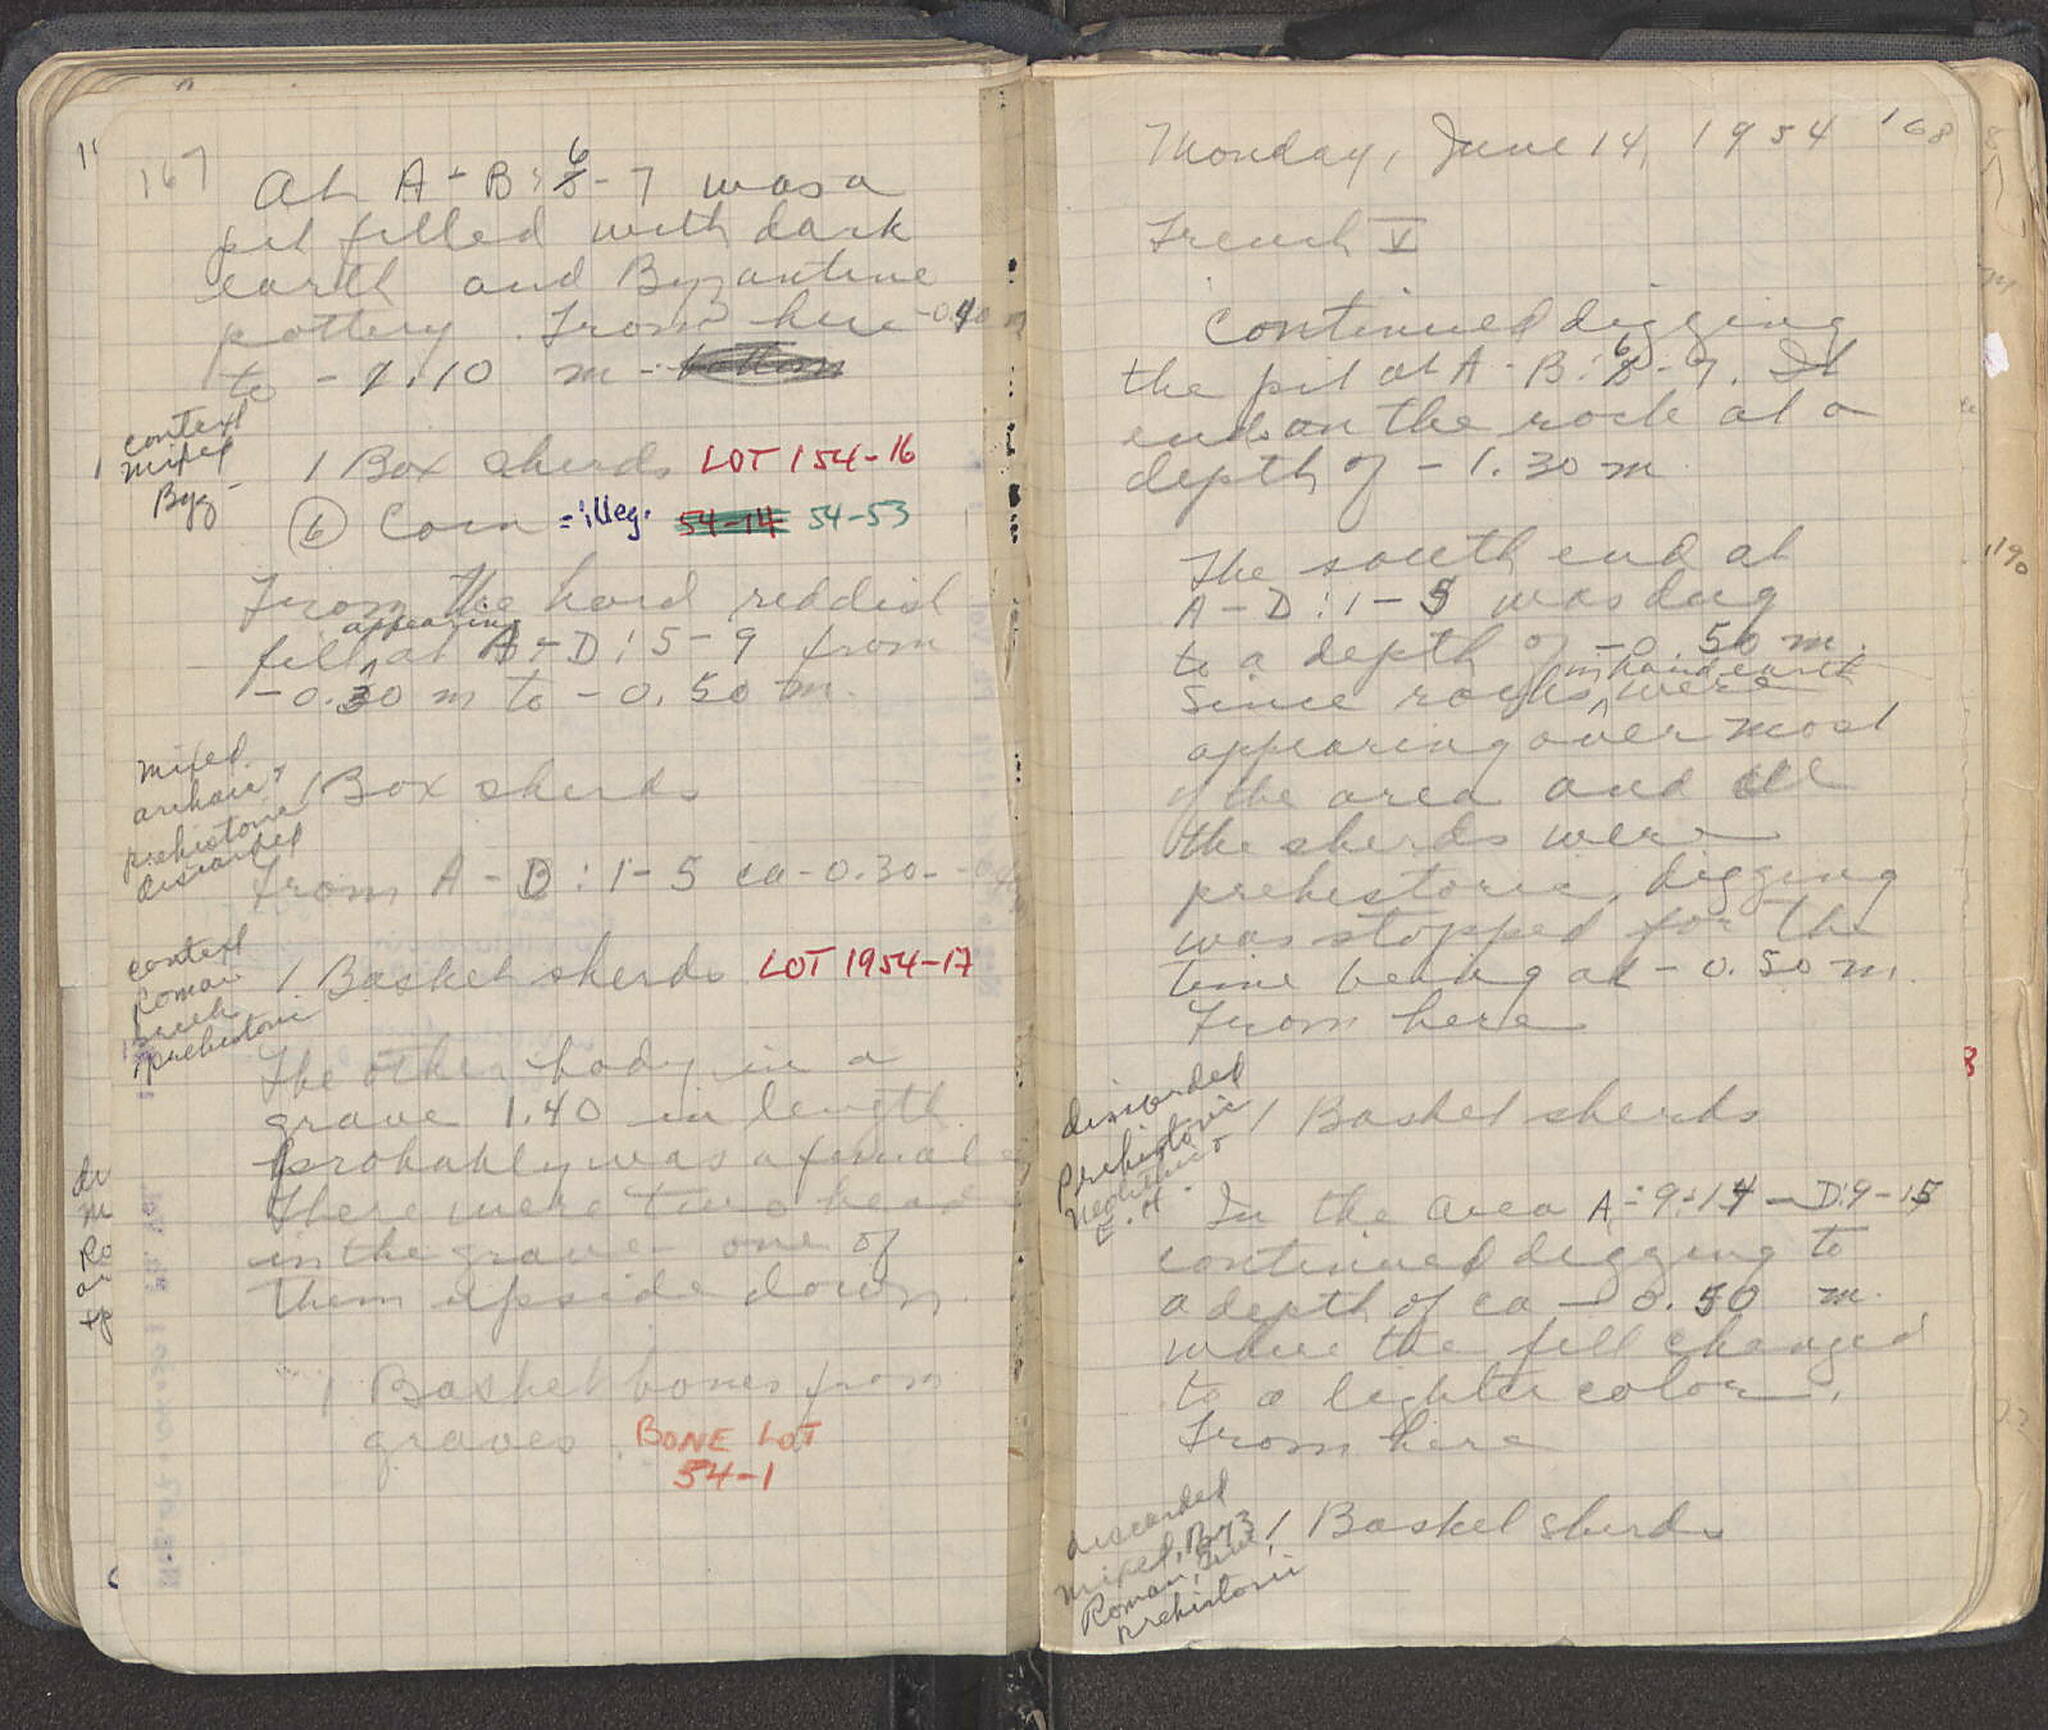 167
At A-B:6-7 was a
pit filled with dark
earth and Byzantine
pottery. From here -0.40 m
to -1.10 m
context
mixed
Byz
1 Box sherds LOT 154-16
(6) Coin = illeg. 54-14 54-53
From the hard reddish
fill appearing at A-D:5-9 from
-0.30 m to -0.50 m.
mixed
archaic +
prehistoric
discarded
1 Box sherds
From A-D:1-5 ca -0.30-
context
Roman
Greek
prehistoric
1 Basket sherds LOT 1954-17
The other body in a
grave 1.40 in length
probably was a female
There were two head
in the grave - one of
them upside down.
1 Basket bones from
graves. BONE LOT
54-1
Monday, June 14, 1954 168
Trench V
Continued digging
the pit at A-B:6-7. It
ends on the rock at a
depth of -1.30 m
The south end at
A-D:1-5 was dug
to a depth of -0.50 m.
Since rocks in hard earth were
appearing over most
of the area and all
the sherds were
prehistoric, digging
was stopped for the
time being at -0.50 m.
From here
discarded
prehistoric
Neolithic +
E.H.
1 Basket sherds
In the area A:9-14 - D:9-15
continued digging to
a depth of ca -0.50 m.
where the fill changed
to a lighter color.
From here
discarded
mixed, Byz
Roman,
prehistoric
1 Basket sherds